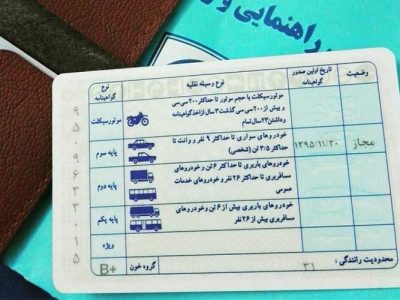 راهنمایی و
وضعیت
تاریخ اولین صدور گواهینامه
نوع وسیله نقلیه
نوع گواهینامه
موتورسیکلت با حجم موتور تا حداکثر ۲۰۰ سی سی
و بیش از ۲۰۰ سی سی گذشت ۲ سال از اخذ گواهینامه
وداشتن ۲۳ سال تمام
موتورسیکلت
مجاز
۱۳۹۵/۱۱/۳۰
خودروهای سواری تا حداکثر ۹ نفر و وانت تا
حداکثر ۳/۵ تن (شخصی)
پایه سوم
خودروهای باربری تا حداکثر ۶ تن و خودروهای
مسافربری تا حداکثر ۲۶ نفر و خودروهای خدمات
عمومی
پایه دوم
خودروهای باربری بیش از ۶ تن و خودروهای
مسافربری بیش از ۲۶ نفر
پایه یکم
ویژه
محدودیت رانندگی : ۳۱
گروه خون B+